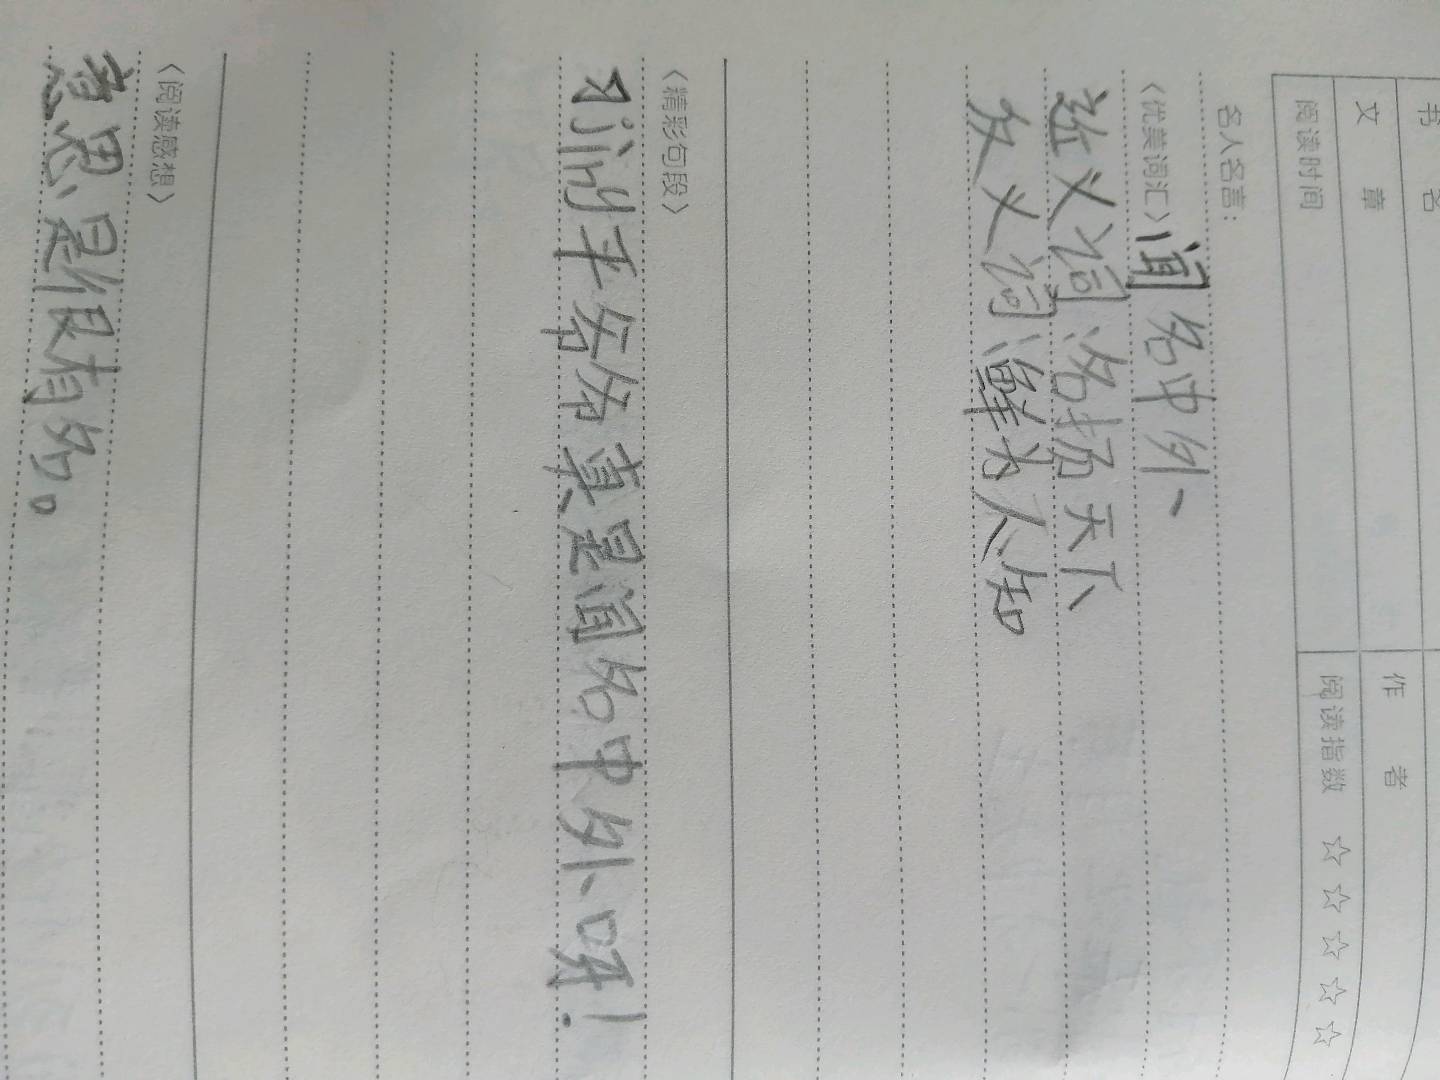 书 名
文 章 作 者
阅读时间 阅读指数 ☆☆☆☆☆
名人名言:
〈优美词汇〉闻名中外
近义词 名扬天下
反义词 鲜为人知
〈精彩句段〉
习jìn平爷爷真是闻名中外呀!
〈阅读感想〉
意思是很有名。